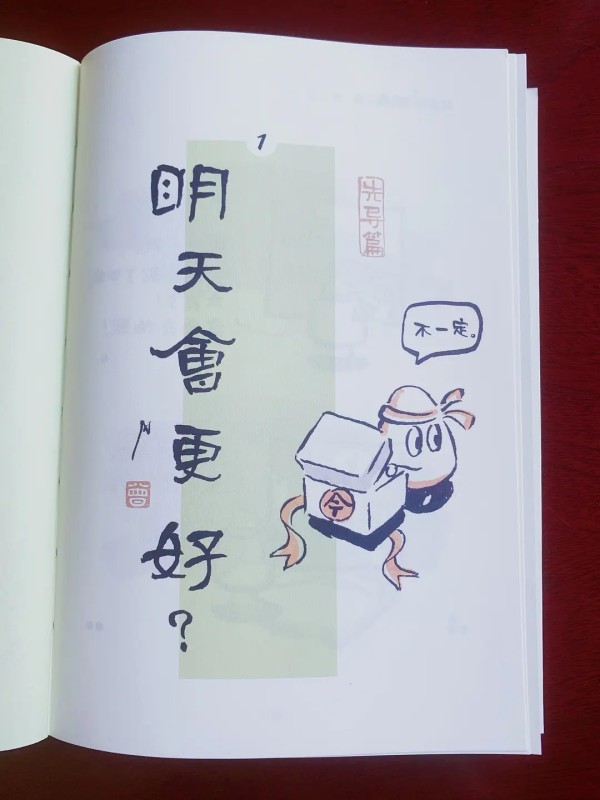 1
明天會更好？
先导篇
不一定。
今
曾